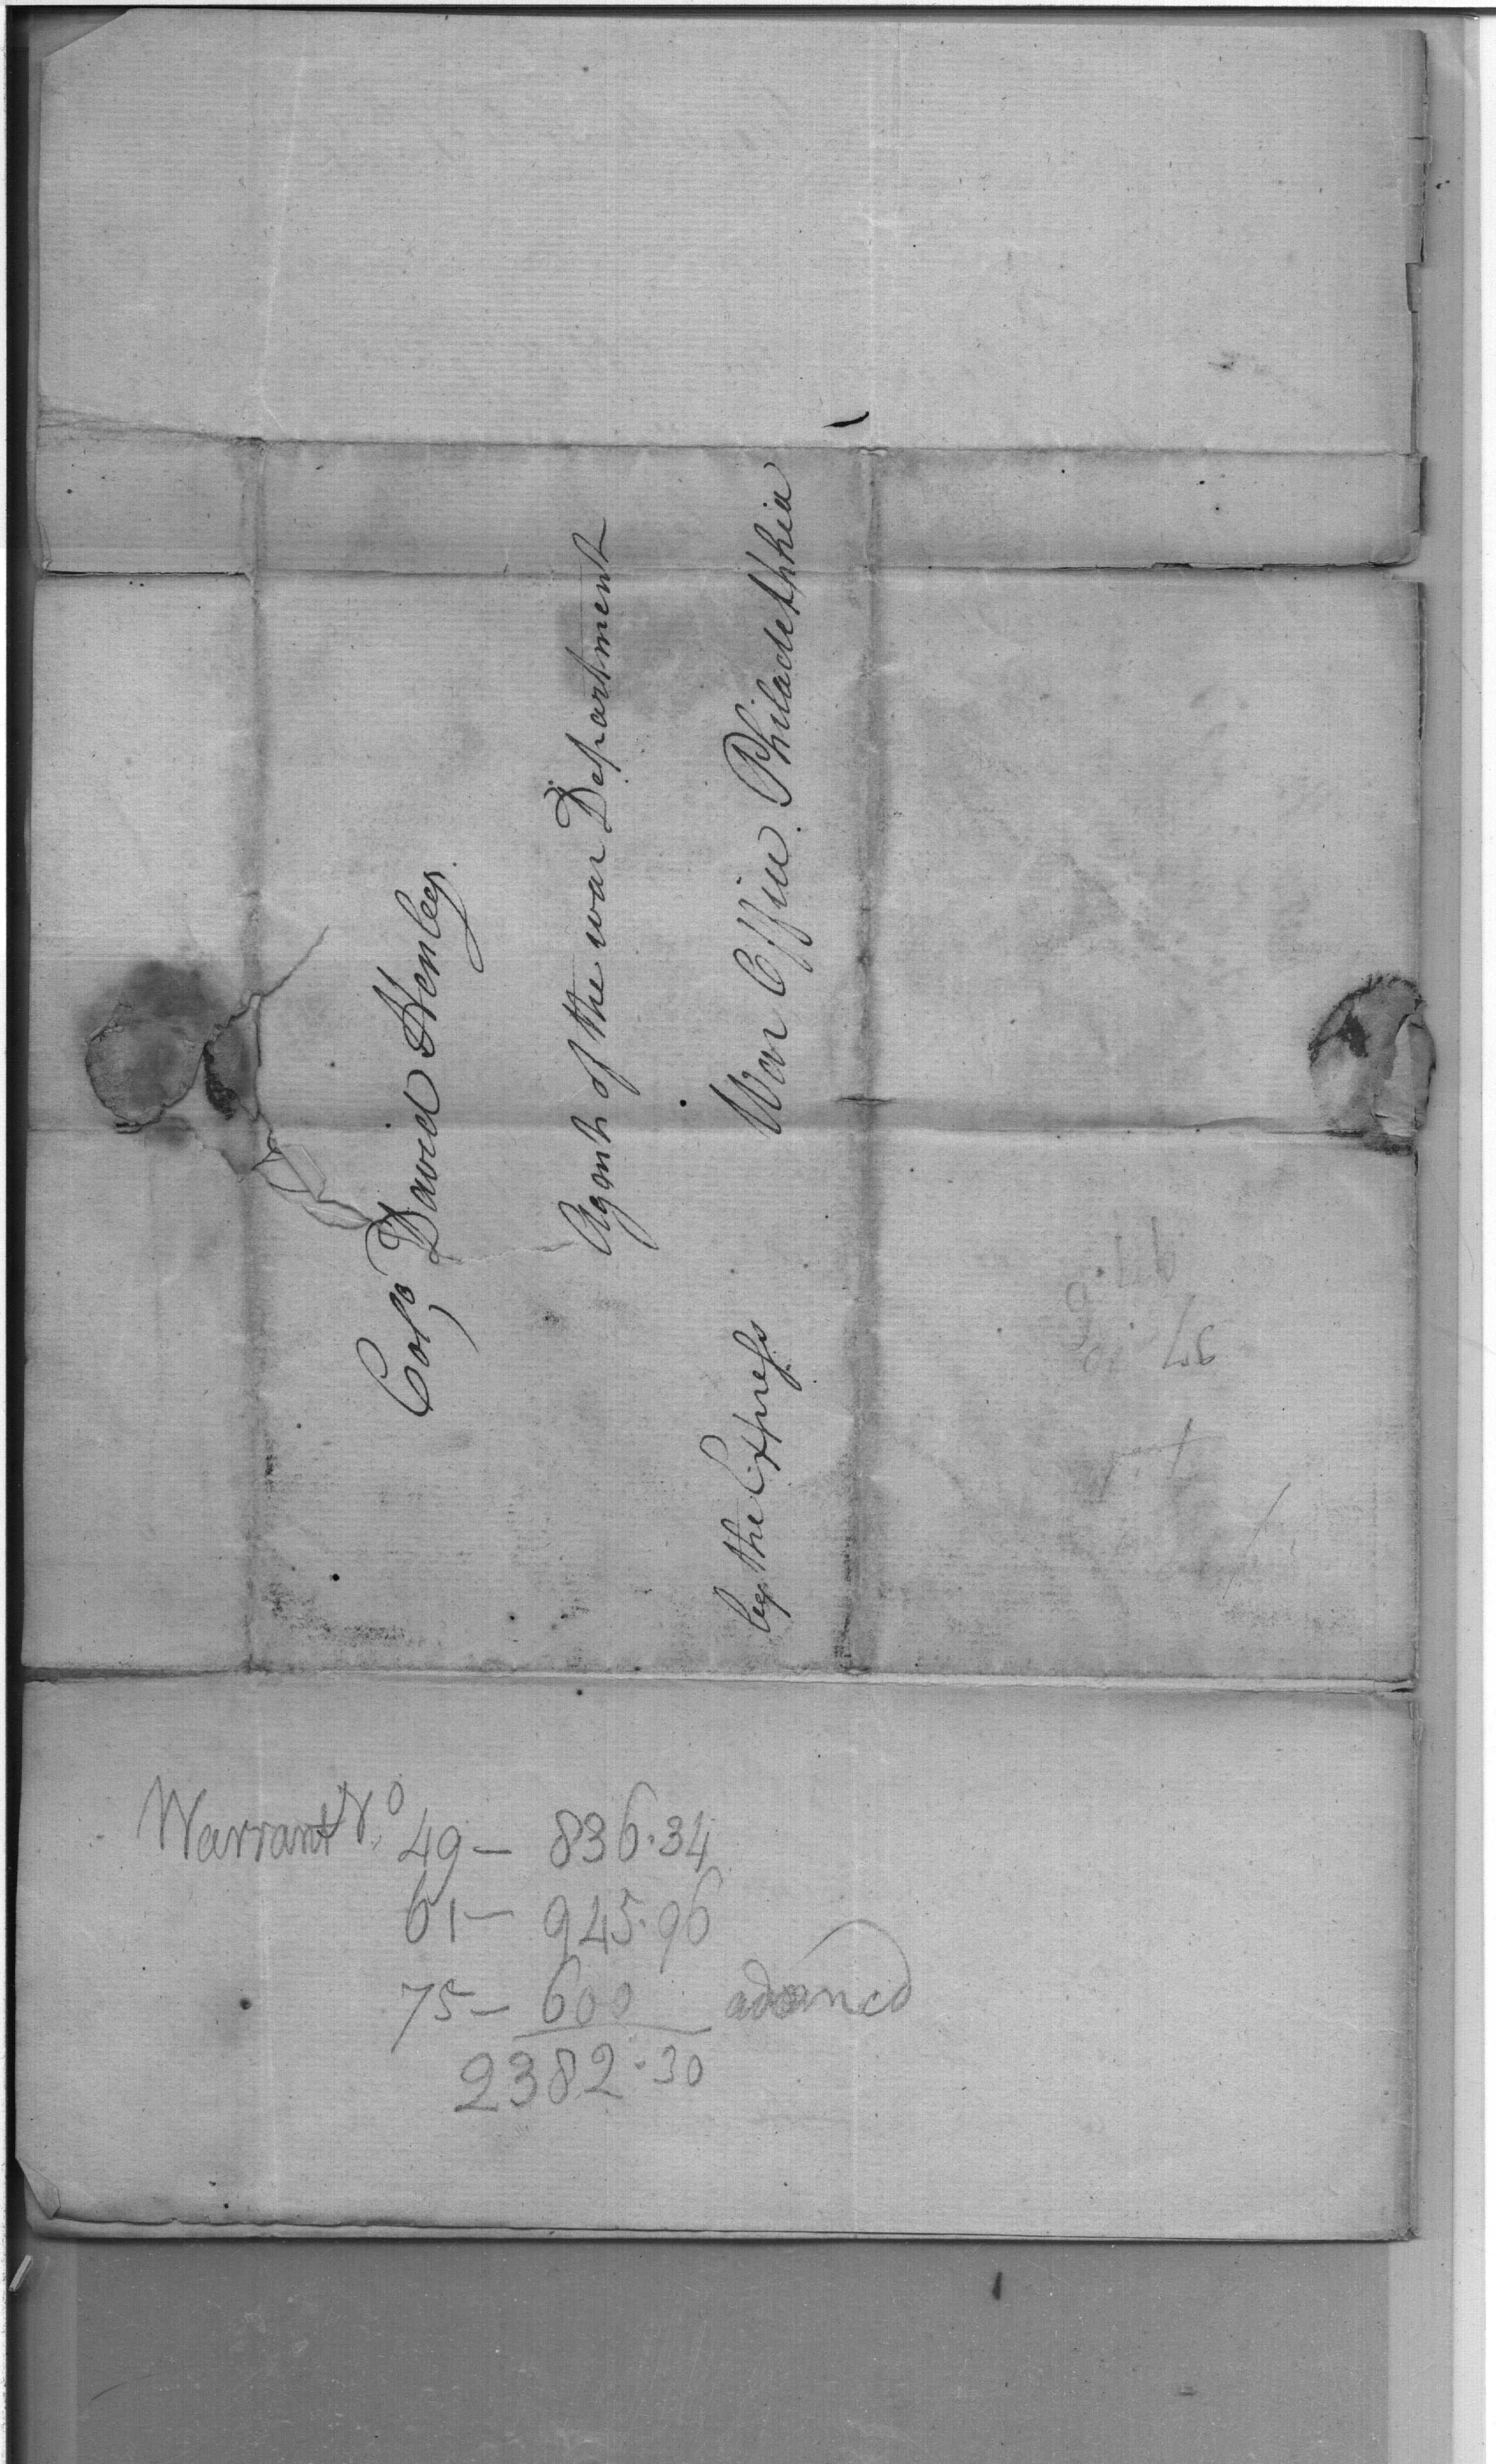 Colo David Henley
Agent of the war Department
War Office Philadelphia
by the Express
Warrant No 49 - 836.34
61 - 945.96
75 - 600 advancd
2382.30